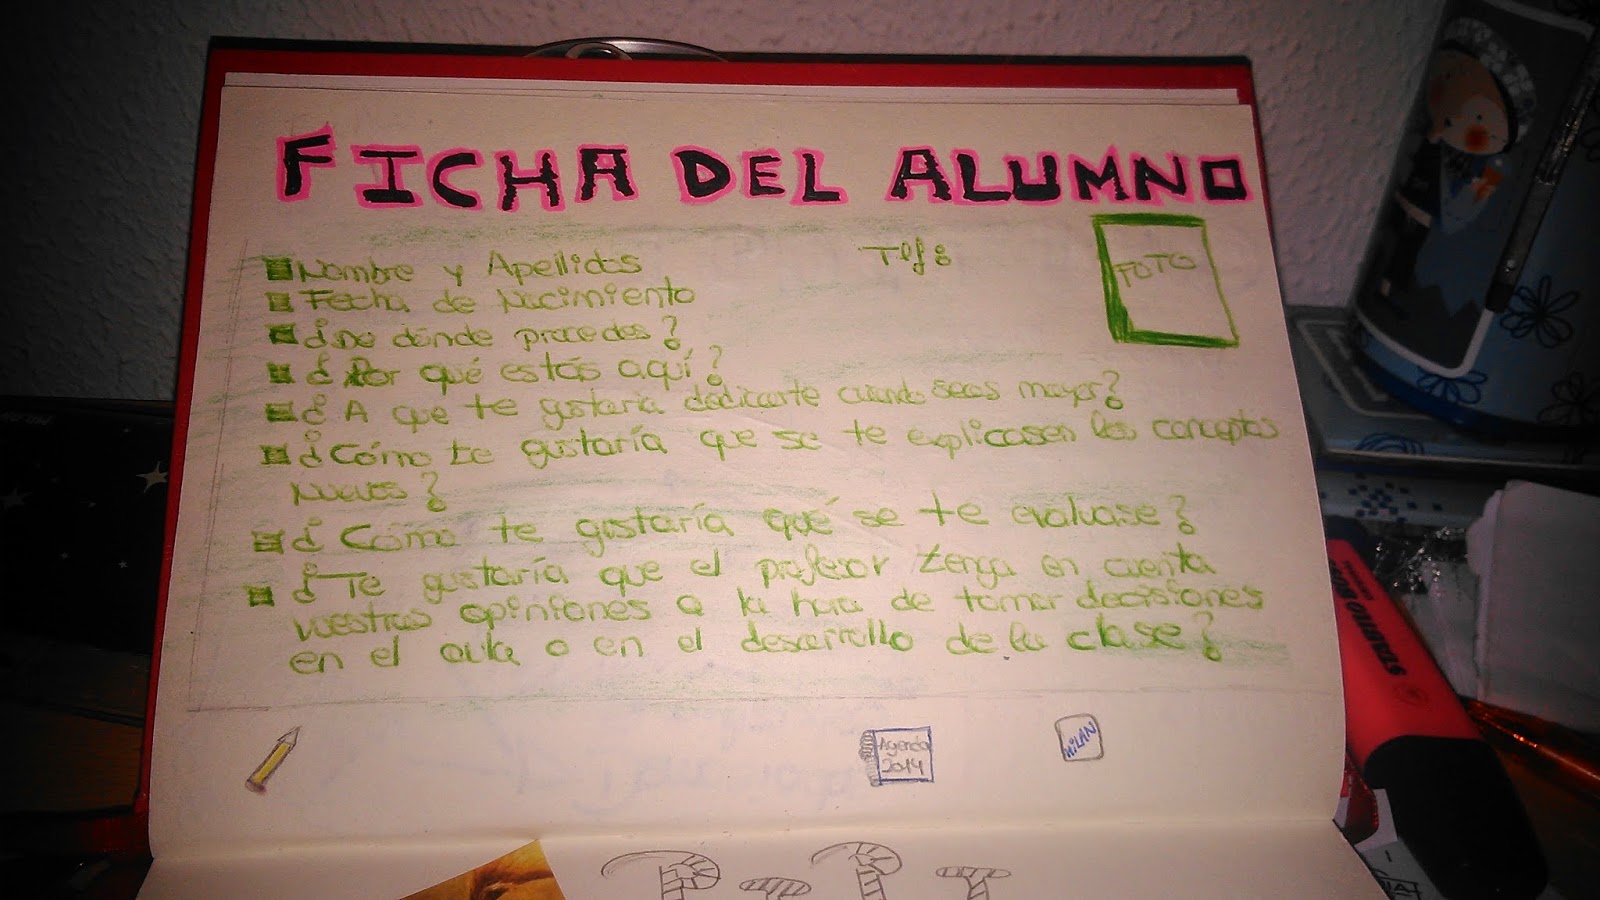 FICHA DEL ALUMNO
Nombre y Apellidos Tlf:
FOTO
Fecha de Nacimiento
¿De dónde procedes?
¿Por qué estás aquí?
¿A que te gustaría dedicarte cuando seas mayor?
¿Cómo te gustaría que se te explicasen los conceptos
nuevos?
¿Cómo te gustaría qué se te evaluase?
¿Te gustaría que el profesor tenga en cuenta
vuestras opiniones a la hora de tomar decisiones
en el aula o en el desarrollo de la clase?
Agenda
2014
MILAN
STABILO BOSS